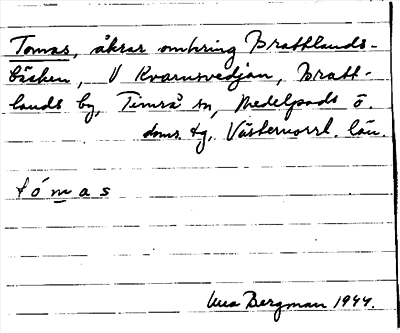 Tomas, åkrar omkring Brattlands-
bäcken, V Kvarnsvedjan, Bratt-
lands by, Timrå sn, Medelpads ö.
doms. tg, Västernorrl. län.
tómas
Una Bergman 1944.